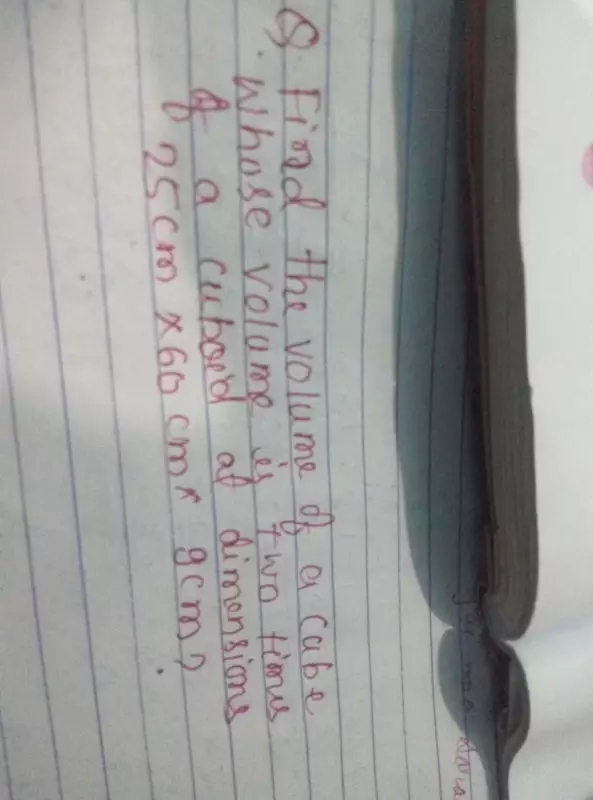 Q. Find the volume of a cube
whose volume is two times
of a cuboid of dimensions
25cm x 60 cm x 9cm?